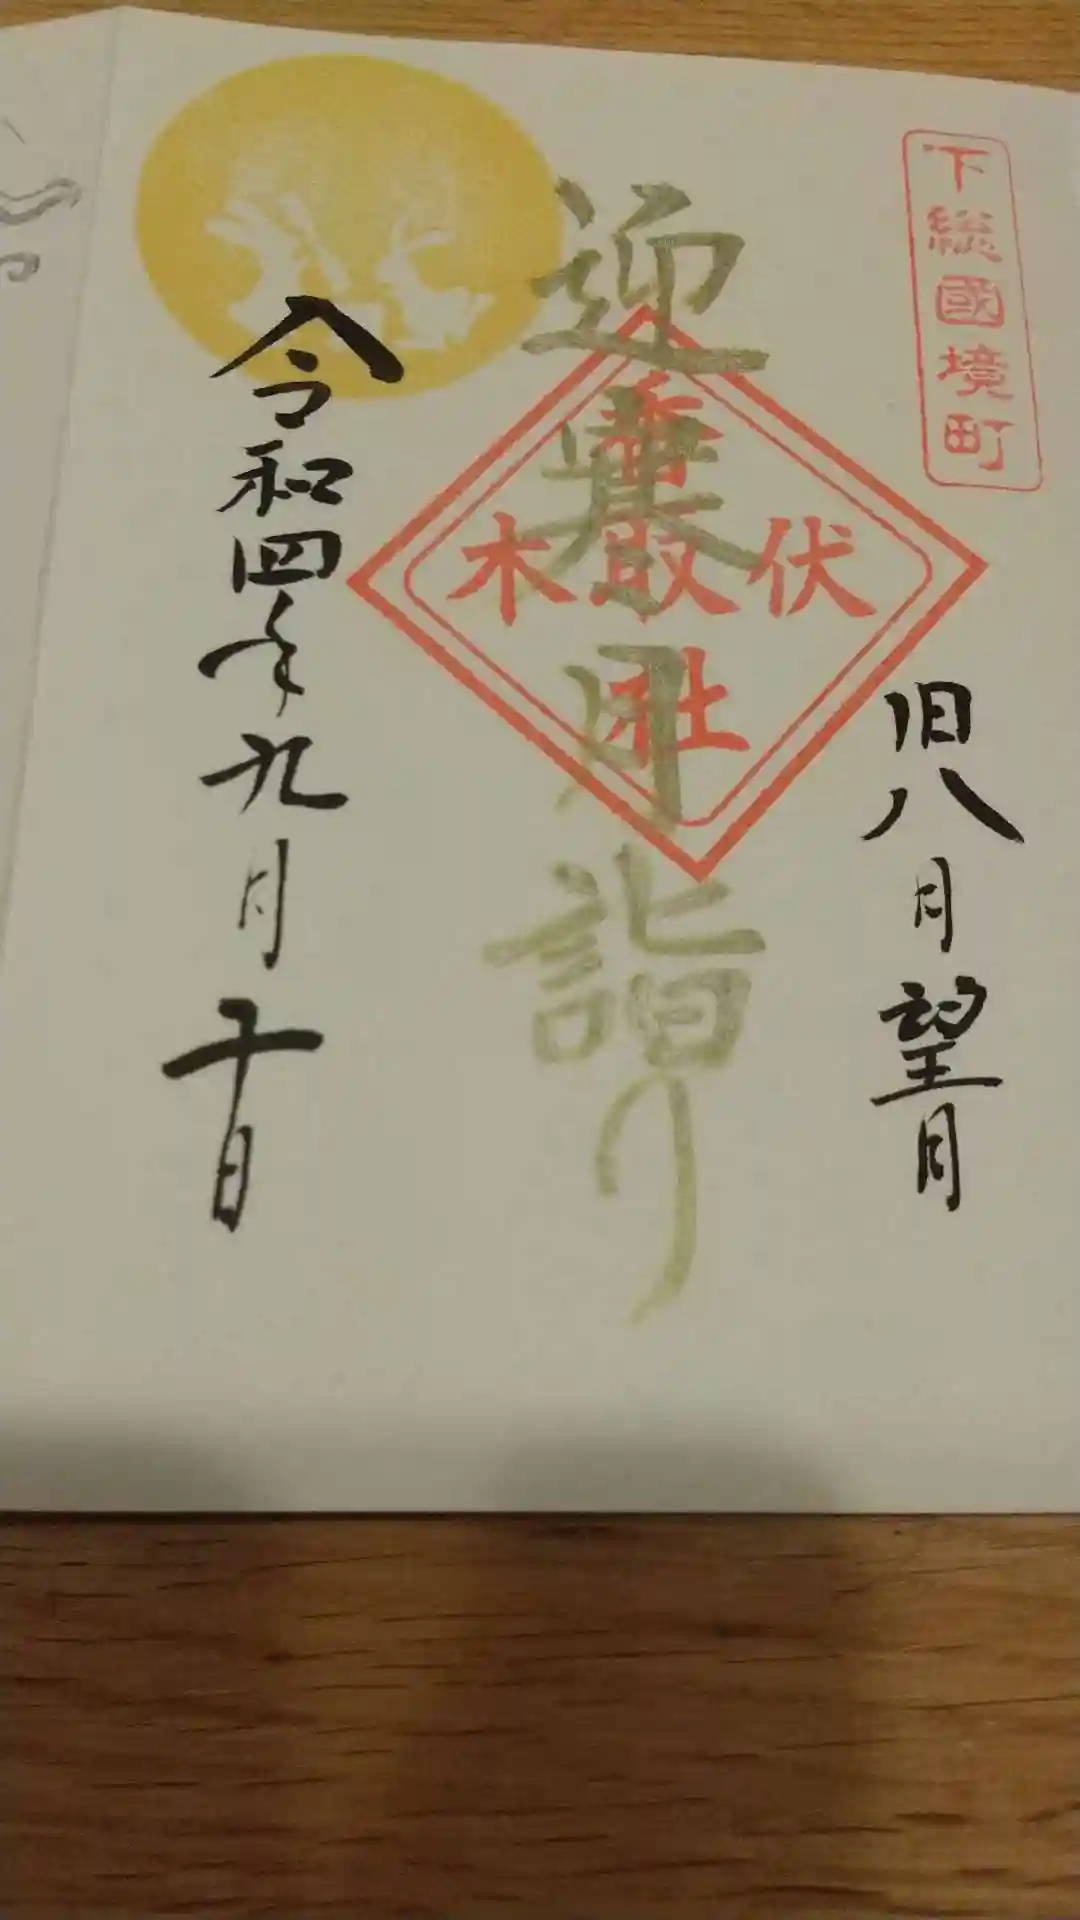 下総國境町
旧八月望月
迎 月詣り
伏木
香取社
令和四年九月十日